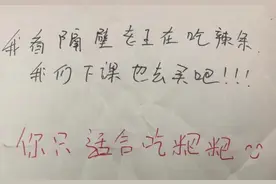 我看隔壁老王在吃辣条,
我们下课也去买吧!!!
你只适合吃粑粑